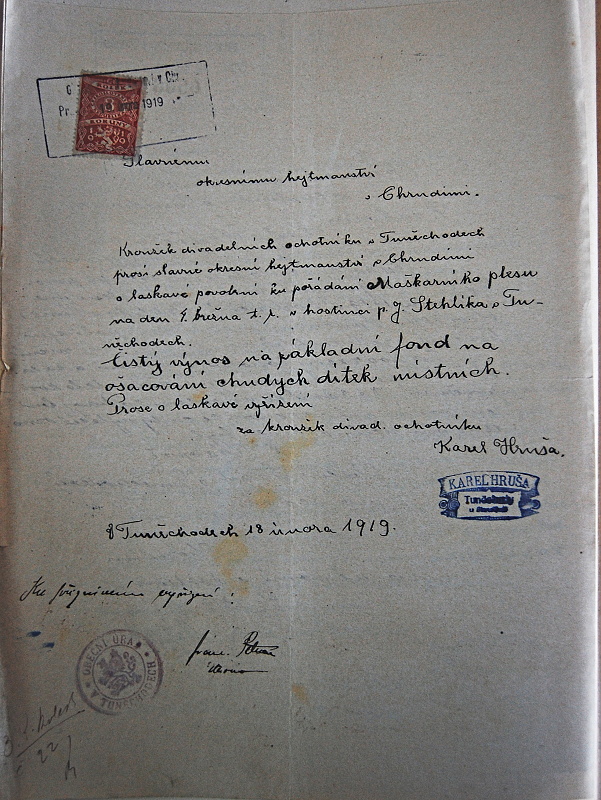 1919
KOLEK
KORUNY
Slavnému
okresnímu hejtmanství
v Chrudimi.
Kroužek divadelních ochotníku v Tuněchodech
prosí slavné okresní hejtmanství v Chrudimi
o laskavé povolení ku pořádání Maškarního plesu
na den 9. března t. r. v hostinci p. J. Stehlíka v Tu-
něchodech.
Čistý výnos na základní fond na
ošacování chudých dítek místních.
Prose o laskavé vyřízení
za kroužek divad. ochotníku
Karel Hruša.
KAREL HRUŠA
Tuněchody
V Tuněchodech 18 února 1919.
Ku příznivému vyřízení:
OBECNÍ ÚŘAD
V TUNĚCHODECH
22